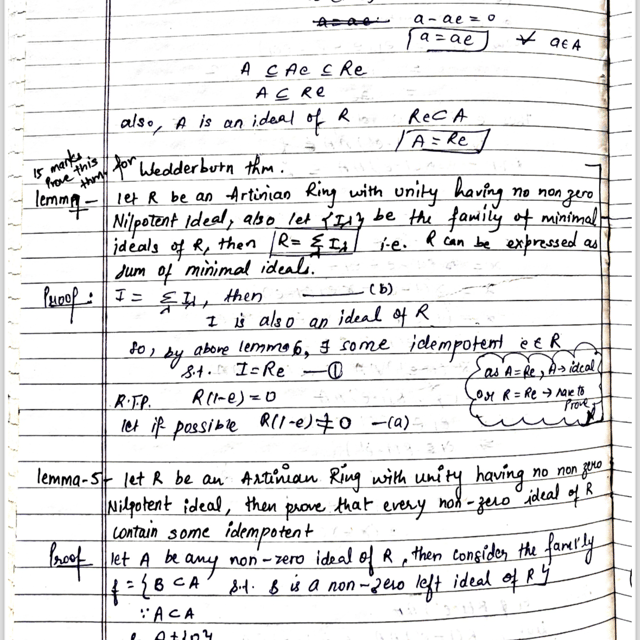 a = ae   a - ae = 0
a = ae   ∀ a∈A
A ⊆ Ae ⊆ Re
A ⊆ Re
also, A is an ideal of R   Re⊂A
A = Re
15 marks
Prove this
thm.
for Wedderburn thm.
lemma - let R be an Artinian Ring with unity having no non zero
Nilpotent Ideal, also let {Iλ} be the family of minimal
ideals of R, then R = Σλ Iλ i.e. R can be expressed as
sum of minimal ideals.
Proof: I = Σλ Iλ, then ——— (b)
I is also an ideal of R
So, by above lemma 6, ∃ some idempotent e∈R
s.t. I = Re —①
as A=Re, A→ideal
or R=Re → have to
Prove
R.T.P. R(1-e)=0
let if possible R(1-e)≠0 —(a)
lemma-5- let R be an Artinian Ring with unity having no non zero
Nilpotent ideal, then prove that every non-zero ideal of R
contain some idempotent
Proof let A be any non-zero ideal of R, then consider the family
f = {B⊂A s.t. B is a non-zero left ideal of R}
∵ A⊂A